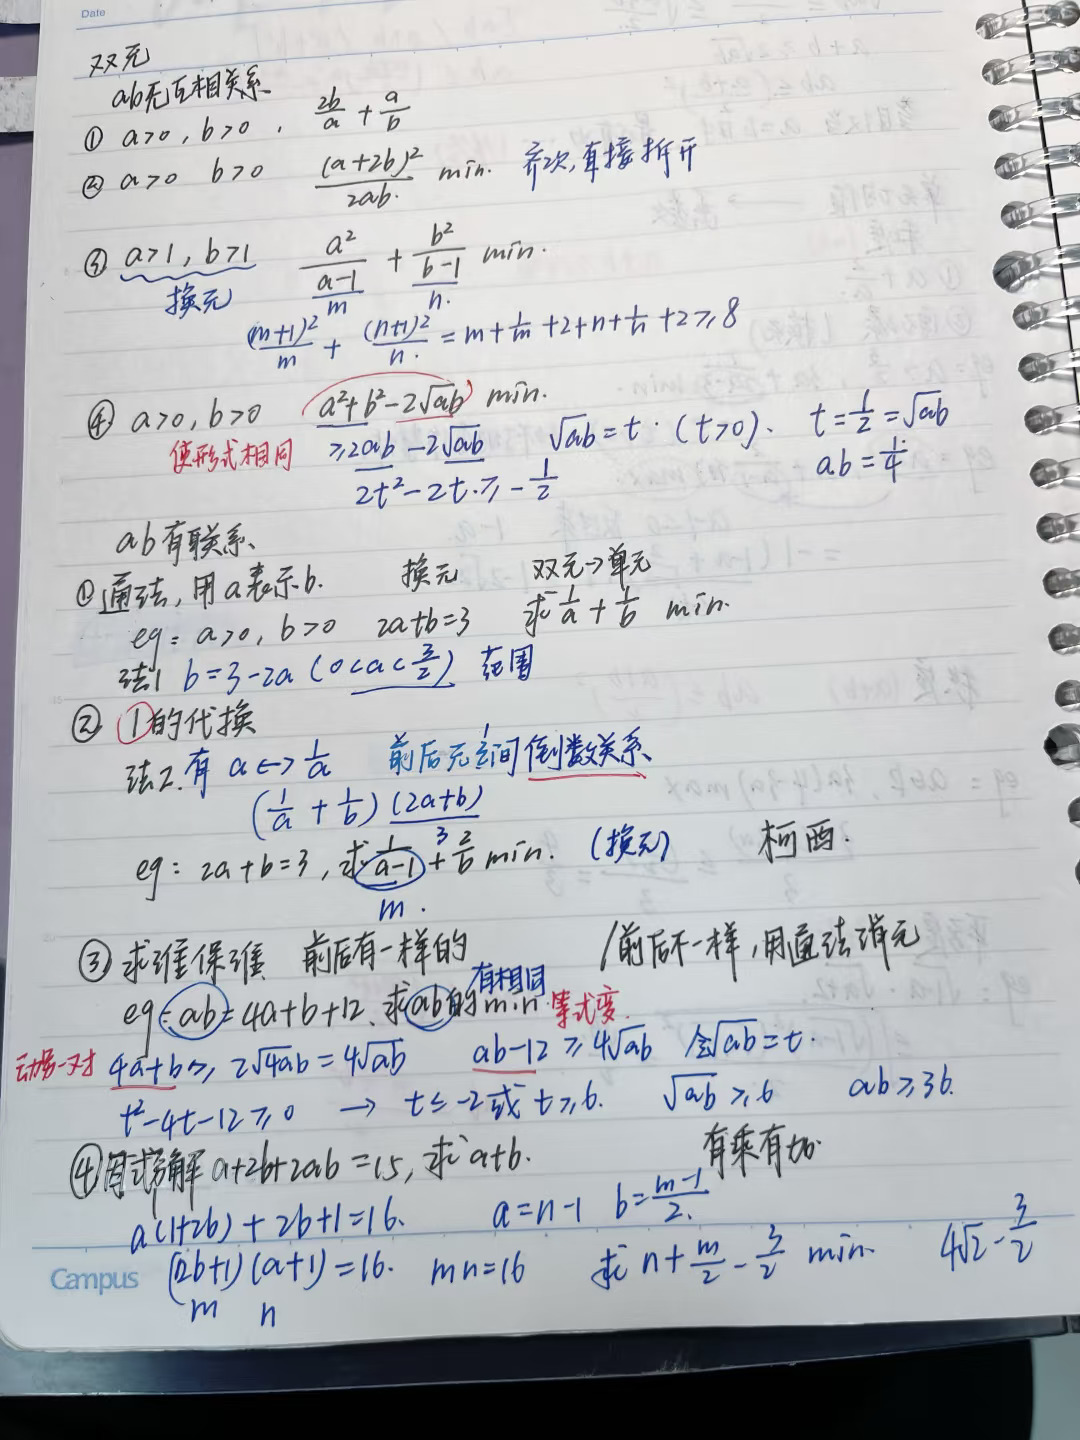 Date
双元
ab无互相关系
① a>0, b>0, 2b/a + a/b
② a>0 b>0 (a+2b)²/2ab min. 齐次,直接拆开
③ a>1, b>1 a²/(a-1) + b²/(b-1) min.
换元 m n.
(m+1)²/m + (n+1)²/n = m+1/m+2+n+1/n+2≥8
④ a>0, b>0 a²+b²-2√ab min.
使形式相同 ≥2ab-2√ab √ab=t.(t>0). t=1/2=√ab
2t²-2t.≥-1/2 ab=1/4
ab有联系
①通法,用a表示b. 换元 双元→单元
eg: a>0, b>0 2a+b=3 求1/a+1/b min.
法1 b=3-2a (0<a<3/2) 范围
② 1的代换
法2.有 a↔1/a 前后元之间倒数关系
(1/a+1/b)(2a+b)
3
eg: 2a+b=3,求1/(a-1)+2/b min. (换元) 柯西.
m.
③求谁保谁 前后有一样的 /前后不一样,用通法消元
有相同
eg: ab=4a+b+12.求ab的min. 等式变
4a+b≥2√4ab=4√ab ab-12≥4√ab 令√ab=t.
t²-4t-12≥0 → t≤-2或t≥6. √ab≥6 ab≥36.
④因式分解 a+2b+2ab=15,求a+b. 有乘有加
a(1+2b)+2b+1=16. a=n-1 b=(m-1)/2.
(2b+1)(a+1)=16. mn=16 求n+m/2-3/2 min. 4√2-3/2
m n
Campus